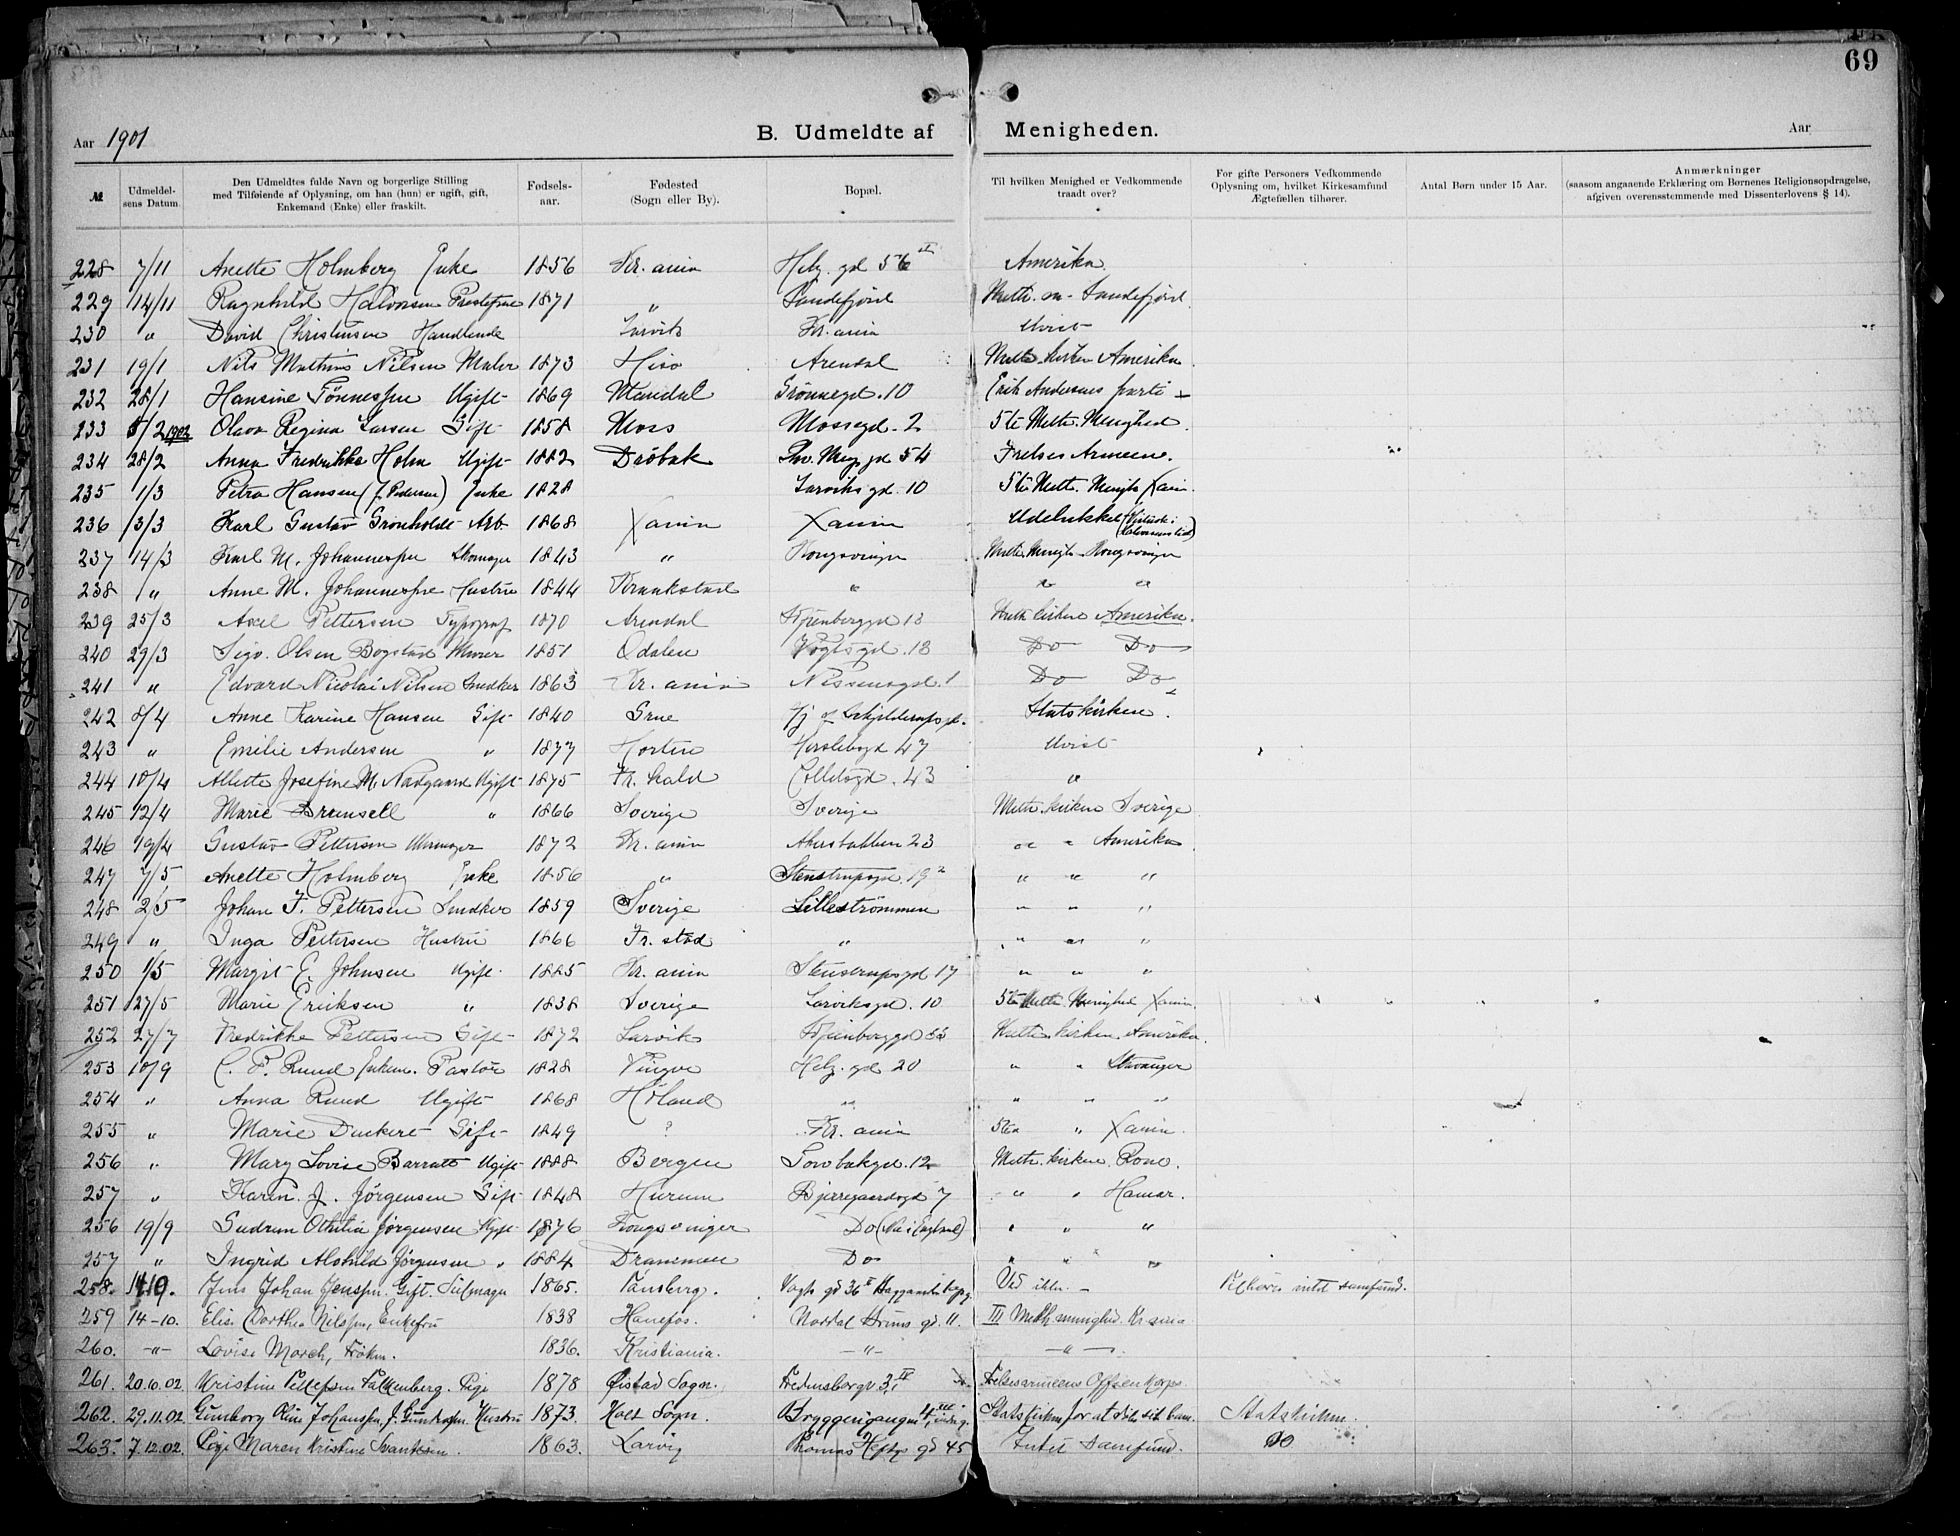 69
Aar 1901 B. Udmeldte af Menigheden. Aar
№ | Udmeldelsens Datum. | Den Udmeldtes fulde Navn og borgerlige Stilling med Tilføiende af Oplysning, om han (hun) er ugift, gift, Enkemand (Enke) eller fraskilt. | Fødselsaar. | Fødested (Sogn eller By). | Bopæl. | Til hvilken Menighed er Vedkommende traadt over? | For gifte Personers Vedkommende Oplysning om, hvilket Kirkesamfund Ægtefællen tilhører. | Antal Børn under 15 Aar. | Anmærkninger (saasom angaaende Erklæring om Børnenes Religionsopdragelse, afgiven overensstemmende med Dissenterlovens § 14).
228 7/11 Anette Holmberg Enke 1856 Kr. ania Helg. gd 56 II Amerika
229 14/11 Ragnhild Halvorsen 1871 " Sandefjord Meth. m- Sandefjord
230 " David Christensen Handlende Larvik Kr. ania Uvist
231 19/1 Nils Mathias Nilsen Maler 1873 Hisø Arendal Meth. kirken Amerika
232 28/1 Hansine Tønnessen Ugift 1869 Mandal Grønnegd. 10 Erik Andersens parti
233 5/2 1902 Olava Regina Larsen Gift 1858 Moss Mossegd. 2 5te Meth. Menighed
234 28/2 Anna Fredrikke Holm Ugift 1882 Drøbak Thv. Meys gd 54 Frelses Armeen.
235 1/3 Petra Hansen (f. Pedersen) Enke 1828 Larviksgd. 10 5te Meth. Menigh. Xania
236 3/3 Karl Gustav Grønholdt Arb 1868 Xania Xania Udelukket
237 14/3 Karl M. Johannessen Skomager 1843 " Kongsvinger Meth. Menigh. Kongsvinger
238 " Anne M. Johannessen Hustru 1844 " " "
239 25/3 Axel Pettersen Typograf 1870 Arendal Stjenberggd 18 Meth. kirken Amerika.
240 29/3 Sigv. Olsen Bogstad Murer 1851 Odalen Vogtsgd. 18 Do Do
241 " Edvard Nicolai Nilsen Snedker 1863 Kr. ania Nissensgd. 1 Do Do
242 8/4 Anne Karine Hansen Gift 1840 Grue Statskirken.
243 " Emilie Andersen " 1877 Horten Herslebsgd 47 Uvist
244 10/4 Josefine M. Ugift 1875 Fr. hald Colletsgd. 43 "
245 12/4 Marie " 1866 Sverige Sverige Meth. kirken Sverige
246 19/4 Gustav Pettersen Urmager 1872 Kr. ania Akersbakken 23 " " Amerika
247 7/5 Anette Holmberg Enke 1856 " Stenstrupsgd. 19 " " "
248 2/5 Johan F. Pettersen Snedker 1859 Sverige Lillestrømmen " " "
249 " Inga Pettersen Hustru 1866 Fr. stad " " " "
250 1/5 Margit E. Johnsen Ugift 1885 Kr. ania Stenstrupsgd 17 " " "
251 27/5 Marie Eriksen " 1838 Sverige Larviksgd. 10 5te Meth. Menighed Xania.
252 27/7 Fredrikke Pettersen Gift 1872 Larvik Stjenberggd Meth. kirken Amerika
253 10/9 C. P. Ruud Enkem. Pastor 1828 Helg. gd 20 " " Stavanger
254 " Anna Ruud Ugift 1868 Høland " " " "
255 " Marie Dunkert Gift 1849 ? Kr. ania 5te " Xania.
256 " Mary Lovise Barratt Ugift 1888 Bergen 12 Meth. kirken
257 " Karen J. Jørgensen Gift 1848 Hurum Bjerregaardsgd 7 " " Hamar.
256 19/9 Gudrun Othilia Jørgensen Ugift 1876 Kongsvinger Do (Nu i England) " " "
257 " Ingrid Alvhild Jørgensen " 1884 Drammen Do " " "
258. 14/9. Jens Johan Jenssen. Gift. 1865. Tønsberg. Vogts gd 36 Ved ikke. - Tilhører intet samfund.
259 14-10. Elis. Dorthea Nilssen, Enkefru 1838 Hønefos. Nordal Bruns gd. 11. III Meth menighed. Kr ania
260. -"- Lovise March, Frøken. 1836. Kristiania. -"- -"-
261. 20.10.02. Kristine Falkenberg. Pige 1878 Øistad Sogn. Fredensborgv 31 IV Frelsesarmeens
262. 29.11.02. Gunborg Oline Johanssen, f. Hustru 1873. Holt Sogn. Bryggerigangen Statskirken for at Statskirken.
263. 7.12.02. Pige Maren Kristine Svantesen. 1863. Larvig Thomas Heftys gd 45 Intet samfund. Do